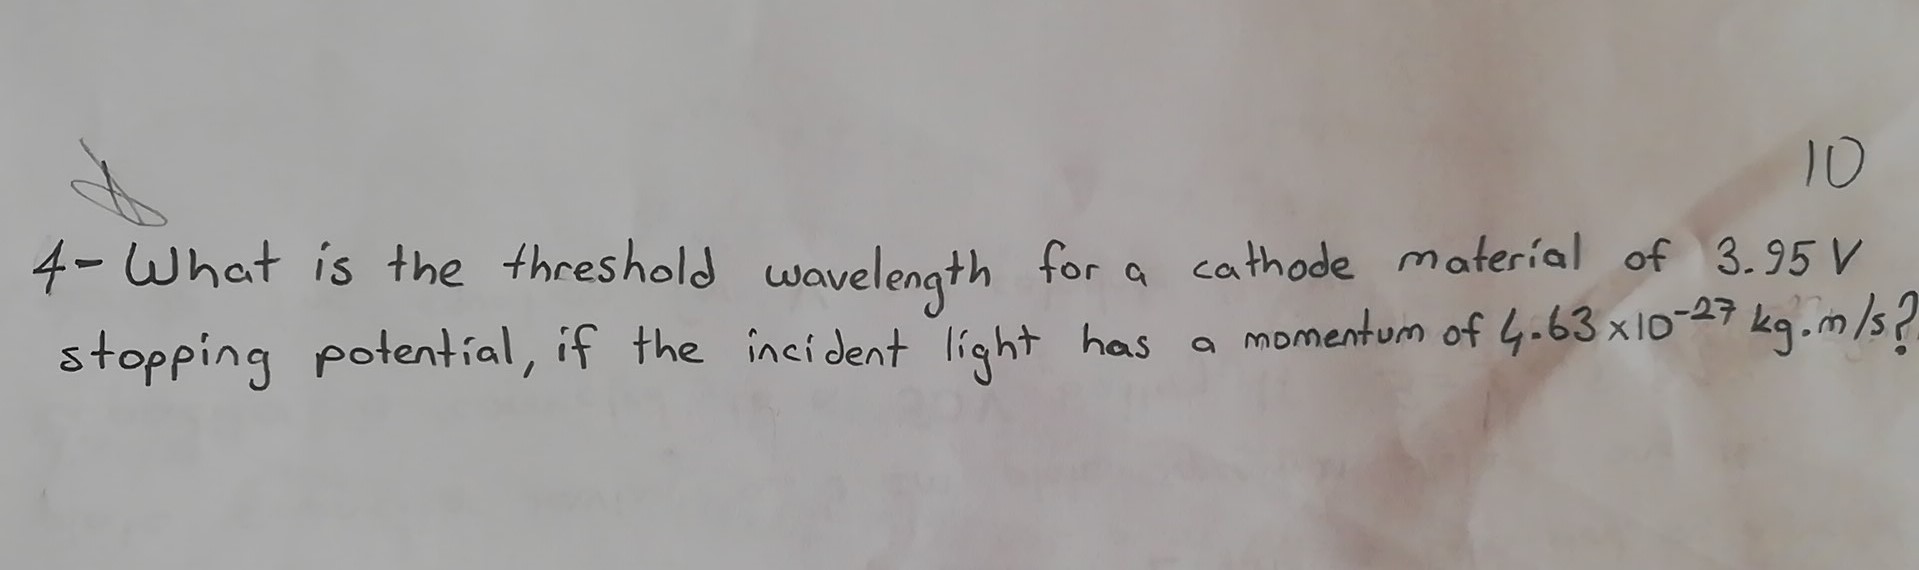 10
4- What is the threshold wavelength for a cathode material of 3.95 V
stopping potential, if the incident light has a momentum of 4.63 x10⁻²⁷ kg.m/s?